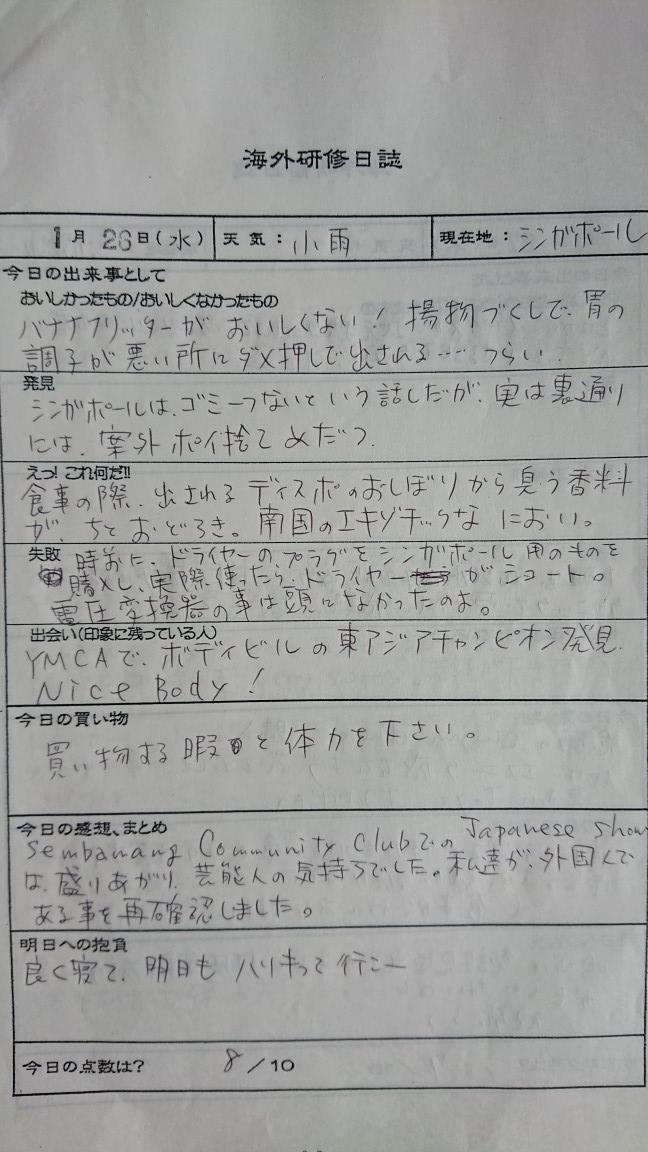 海外研修日誌
1月26日(水) 天気:小雨 現在地:シンガポール
今日の出来事として
おいしかったもの/おいしくなかったもの
バナナフリッターがおいしくない! 揚物づくしで、胃の
調子が悪い所にダメ押しで出される…‥つらい.
発見
シンガポールは、ゴミ一つないという話しだが、実は裏通り
には、案外ポイ捨てめだつ.
えっ! これ何だ!!
食事の際、出されるディスポのおしぼりから臭う香料
が、ちとおどろき。南国のエキゾチックなにおい。
失敗 時前に、ドライヤーのプラグをシンガポール用のものを
購入し、実際使ったら、ドライヤーがショート。
電圧変換器の事は頭になかったのよ。
出会い(印象に残っている人)
YMCAで、ボディビルの東アジアチャンピオン発見.
Nice Body!
今日の買い物
買い物する暇と体力を下さい。
今日の感想、まとめ
Sembawang Community ClubでのJapanese show
は、盛りあがり、芸能人の気持ちでした。私達が、外国人で
ある事を再確認しました。
明日への抱負
良く寝て、明日もハリキって行こー
今日の点数は? 8/10